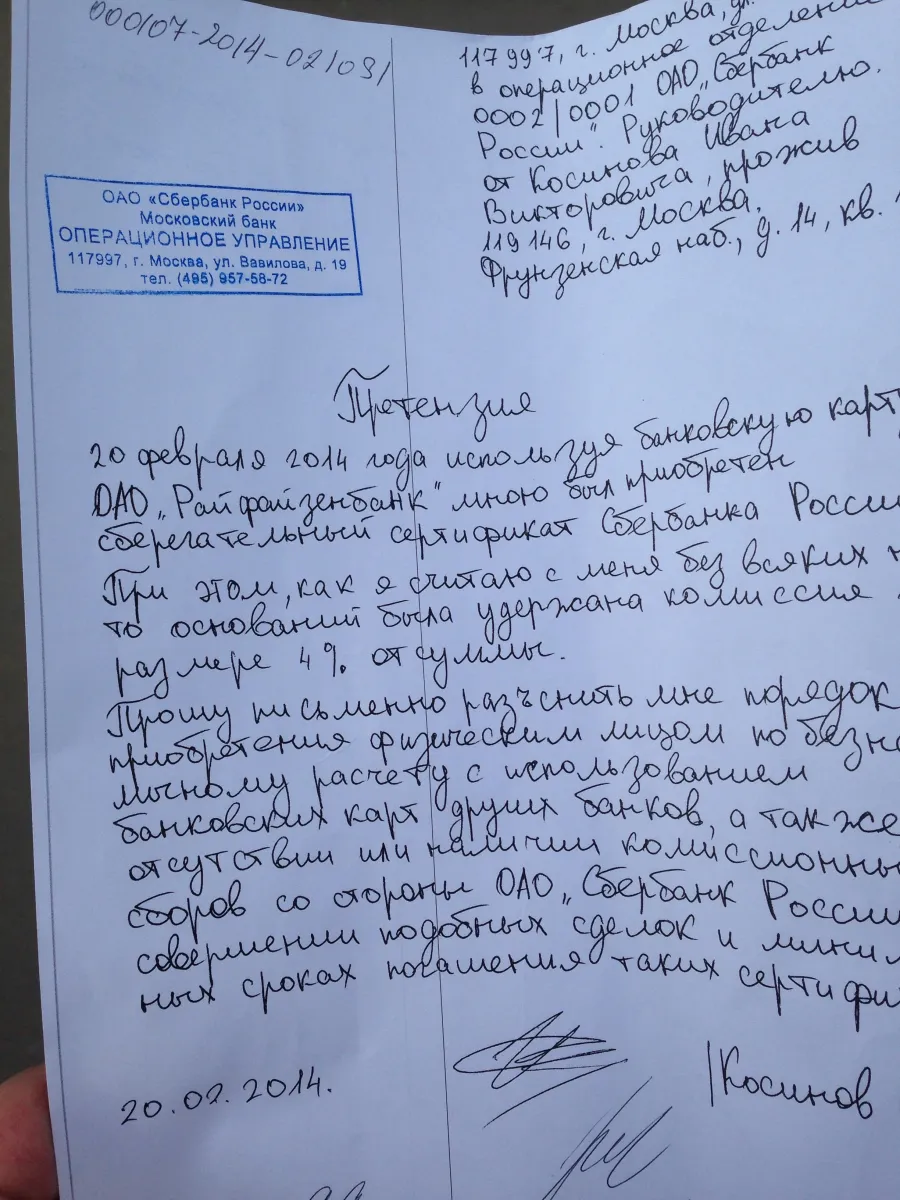 000107-2014-021091
117997, г. Москва, ул.
в операционное отделение
0002/0001 ОАО „Сбербанк
России". Руководителю.
от Косинова Ивана
Викторовича, прожив
119146, г. Москва.
Фрунзенская наб., д. 14, кв.
ОАО «Сбербанк России»
Московский банк
ОПЕРАЦИОННОЕ УПРАВЛЕНИЕ
117997, г. Москва, ул. Вавилова, д. 19
тел. (495) 957-58-72
Претензия
20 февраля 2014 года используя банковскую карт
ОАО „Райфайзенбанк" мною был приобретен
сберегательный сертификат Сбербанка России
При этом, как я считаю с меня без всяких
то оснований была удержана комиссия
размере 4% от суммы.
Прошу письменно разъснить мне порядок
приобретения физическим лицом по безна
личному расчету с использованием
банковских карт других банков, а также
отсутствии или наличии комиссионны
сборов со стороны ОАО „Сбербанк России
совершении подобных сделок и мини
ных сроках погашения таких сертифи
20.02.2014.
/Косинов